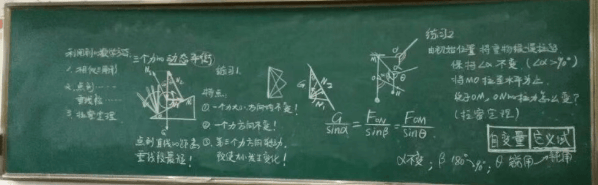 利用到的数学知识
1. 相似三角形
2. 点到……
垂线段……
3. 拉密定理
三个力的动态平衡
N₁
N₂
G
点到直线的距离，
垂线段最短！
练习1.
特点：
① 一个力大小方向均不变！
② 一个力方向不变！
③ 第三个力方向
G
N₁
G/sinα = F_OM/sinβ = F_ON/sinθ
练习2
M
N
α
θ
由初始位置将重物缓慢拉起
保持∠α不变（∠α>90°）
将MO拉至水平为止
绳子OM、ON的拉力怎么变？
（拉密定理）
自变量 定义域
α不变；β 180°→90°；θ 锐角→钝角